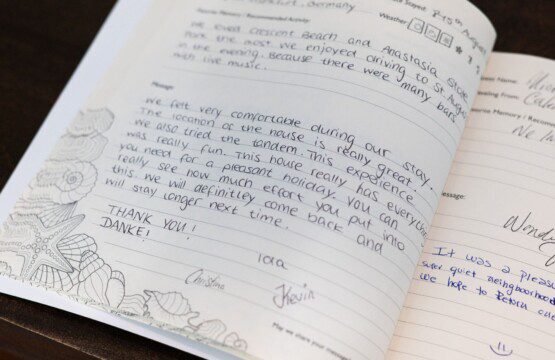 Germany
Stayed: 8-15th August
Weather
Favorite Memory / Recommended Activity:
We loved Crescent Beach and Anastasia State
Park the most. We enjoyed driving to St. Augus
in the evening. Because there were many bars
with live music.
Message:
We felt very comfortable during our stay.
The location of the house is really great.
We also tried the tandem. This experience
was really fun. This house really has everything
you need for a pleasant holiday. You can
really see how much effort you put into
this. We will definitley come back and
will stay longer next time.
THANK YOU!
DANKE!
Iola
Christine
Kevin
May we share your message
Name:
Visiting From: Ca
Favorite Memory / Recomm
Message:
Wend
It was a pleasu
super quiet neighborhood
we hope to return one